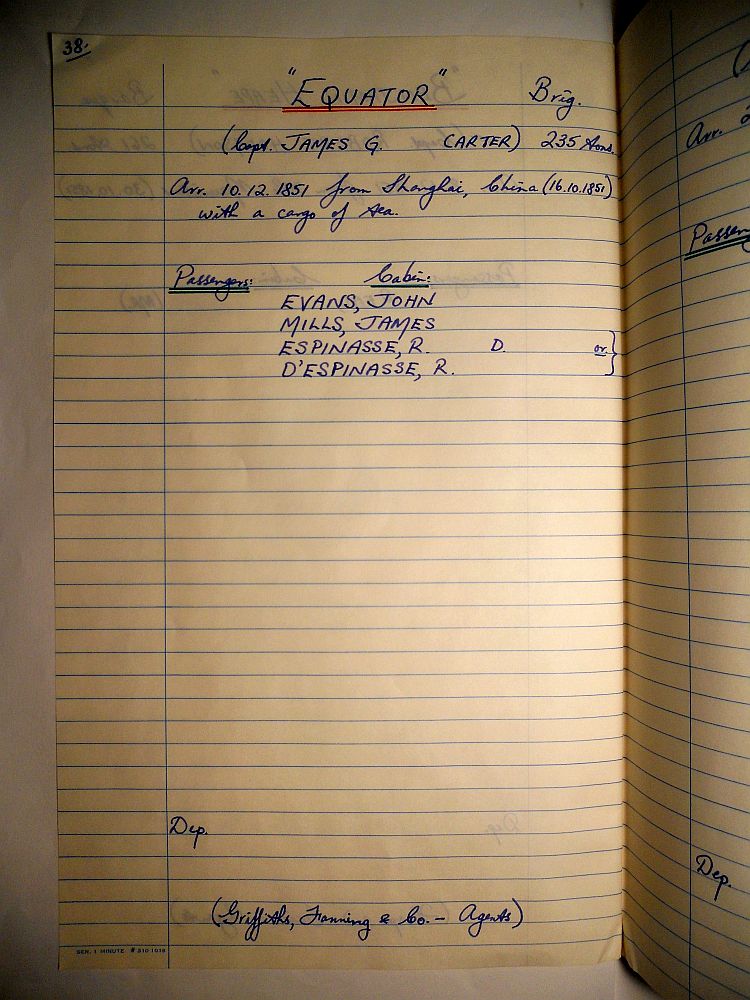 38.
"EQUATOR" Brig.
(Capt. JAMES G. CARTER) 235 tons.
Arr. 10.12.1851 from Shanghai, China (16.10.1851)
with a cargo of tea.
Passengers: Cabin:
EVANS, JOHN
MILLS, JAMES
ESPINASSE, R. D. or }
D'ESPINASSE, R.
Dep.
(Griffiths, Fanning & Co. - Agents)
SEN. 1 MINUTE # 310 1018
Arr.
Passen
Dep.